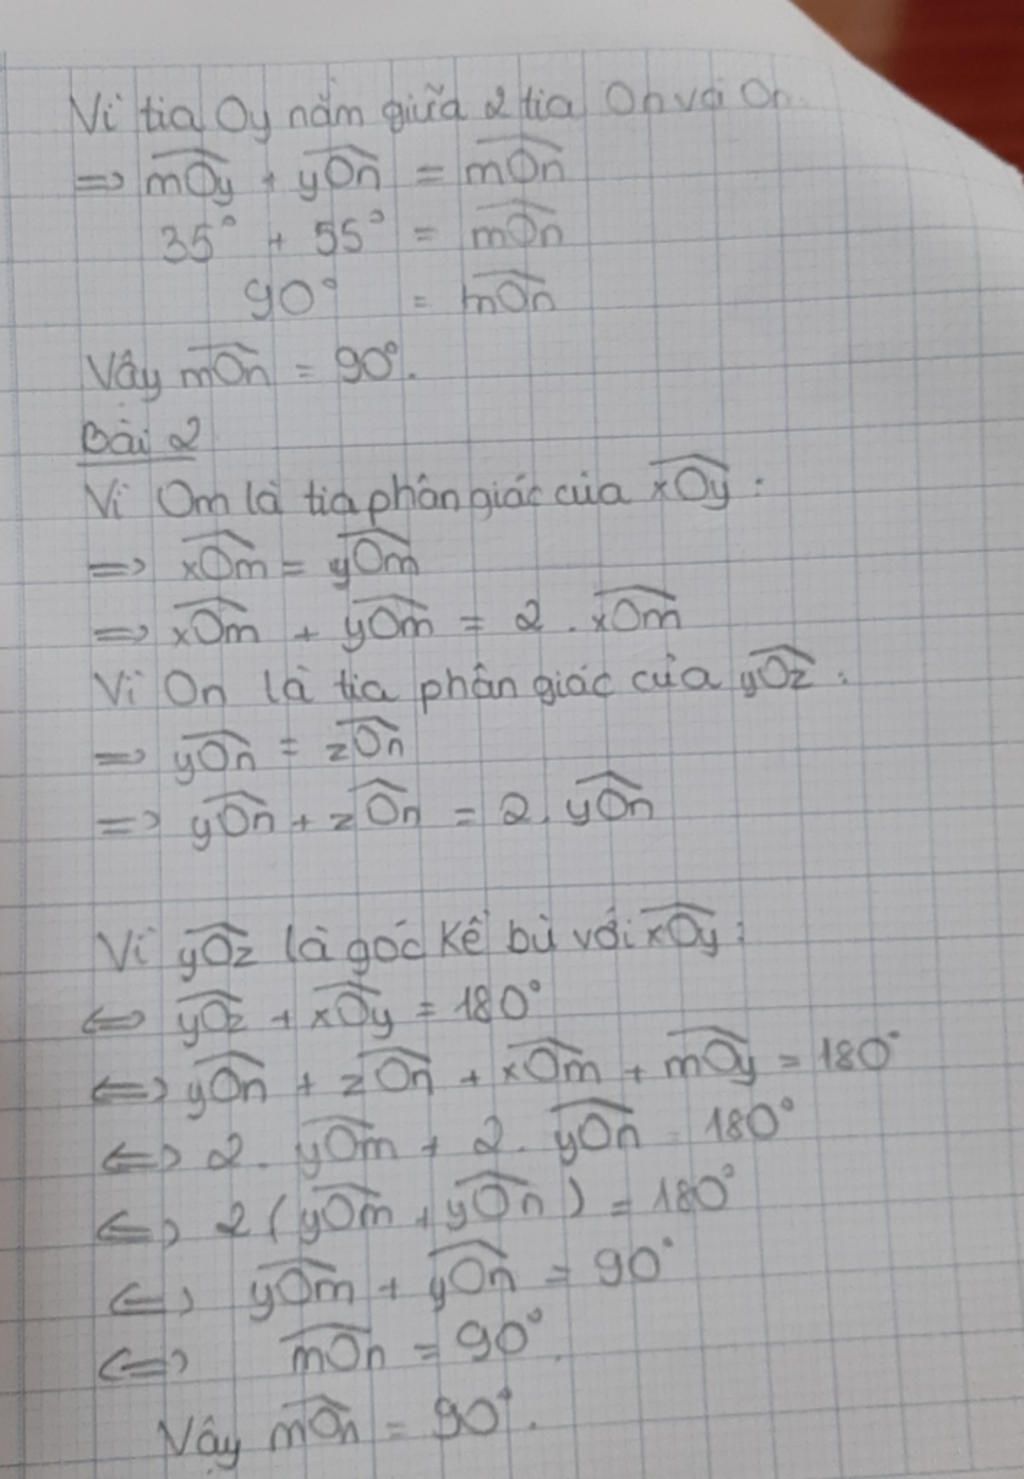 Vì tia Oy nằm giữa 2 tia On và On.
=> mOy + yOn = mOn
35° + 55° = mOn
90° = mOn
Vậy mOn = 90°.
Bài 2
Vì Om là tia phân giác của xOy :
=> xOm = yOm
=> xOm + yOm = 2 . xOm
Vì On là tia phân giác của yOz :
=> yOn = zOn
=> yOn + zOn = 2 . yOn
Vì yOz là góc kề bù với xOy :
<=> yOz + xOy = 180°
<=> yOn + zOn + xOm + mOy = 180°
<=> 2 . yOm + 2 . yOn = 180°
<=> 2 ( yOm + yOn ) = 180°
<=> yOm + yOn = 90°
<=> mOn = 90°.
Vậy mOn = 90°.